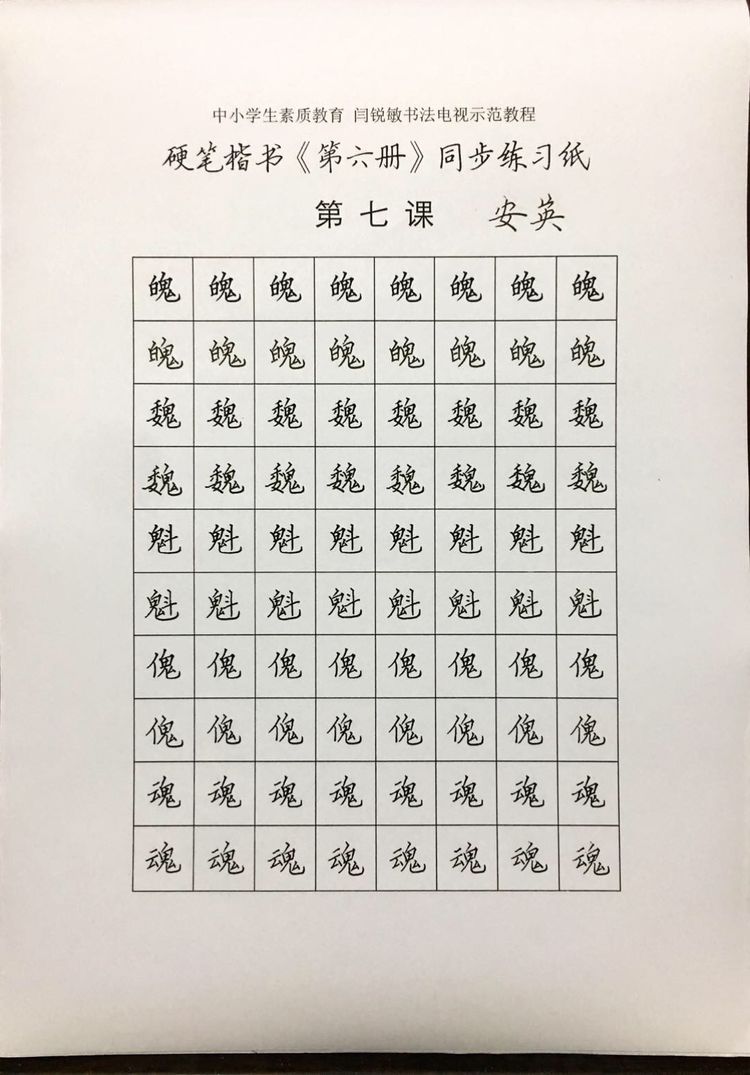 中小学生素质教育 闫锐敏书法电视示范教程
硬笔楷书《第六册》同步练习纸
第七课 安英
魄魄魄魄魄魄魄魄
魄魄魄魄魄魄魄魄
魏魏魏魏魏魏魏魏
魏魏魏魏魏魏魏魏
魁魁魁魁魁魁魁魁
魁魁魁魁魁魁魁魁
傀傀傀傀傀傀傀傀
傀傀傀傀傀傀傀傀
魂魂魂魂魂魂魂魂
魂魂魂魂魂魂魂魂